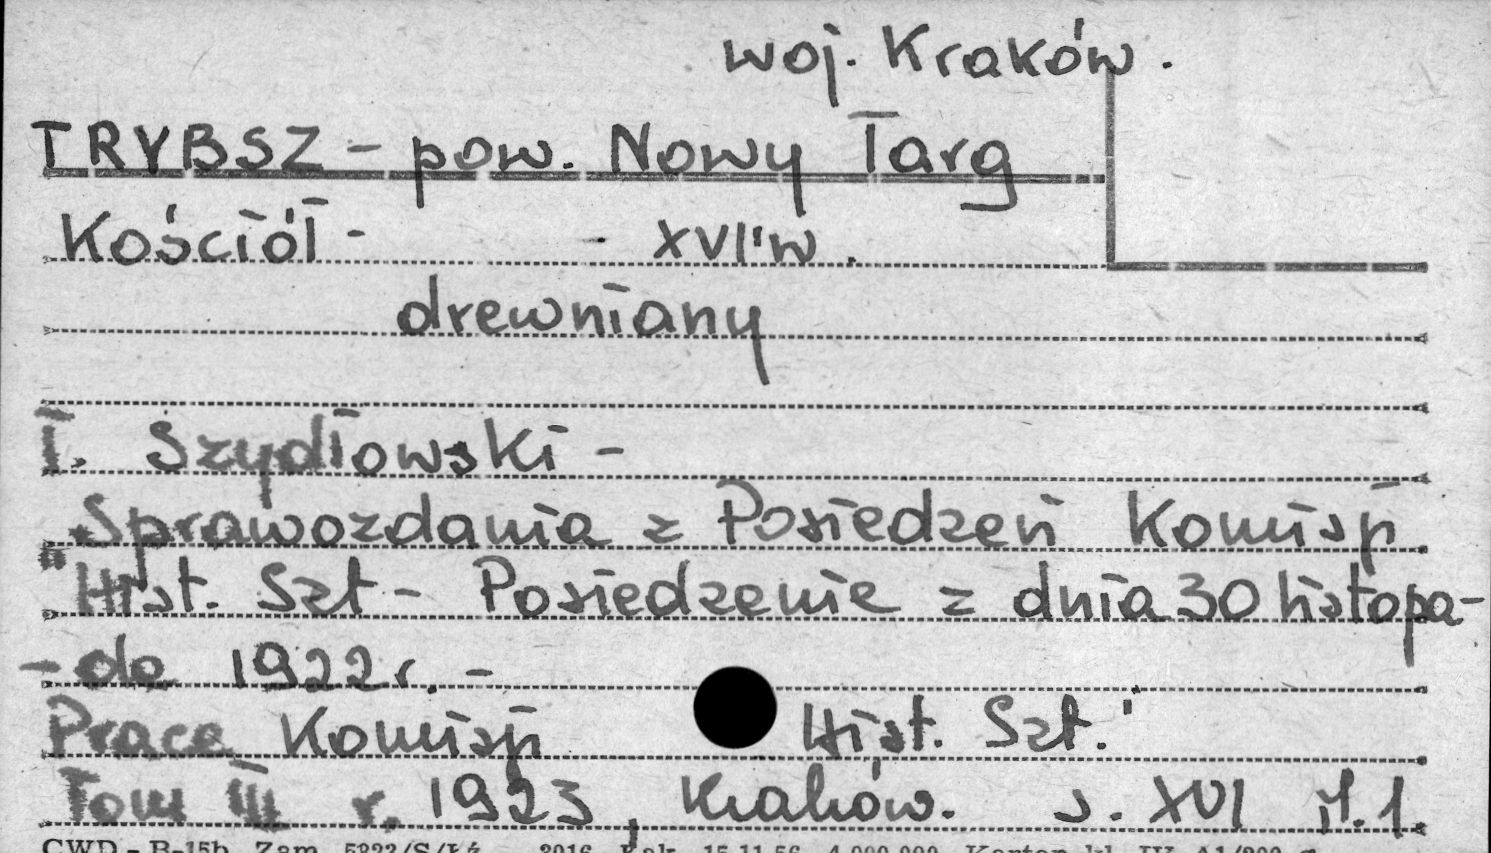 woj. Kraków.
TRYBSZ - pow. Nowy Targ
Kościół - - XVI w.
drewniany
T. Szydłowski -
"Sprawozdania z Posiedzeń Komisji
Hist. Szt - Posiedzenie z dnia 30 listopa-
- da 1922 r. -
Prace Komisji Hist. Szt."
Tom III r. 1923, Kraków. s. XVI il. 1.
CWD - B-15b Zam. 5823/S/Łź 2016 Łak. 15.11.56 4.000.000 Karton kl. IV A1/200 g